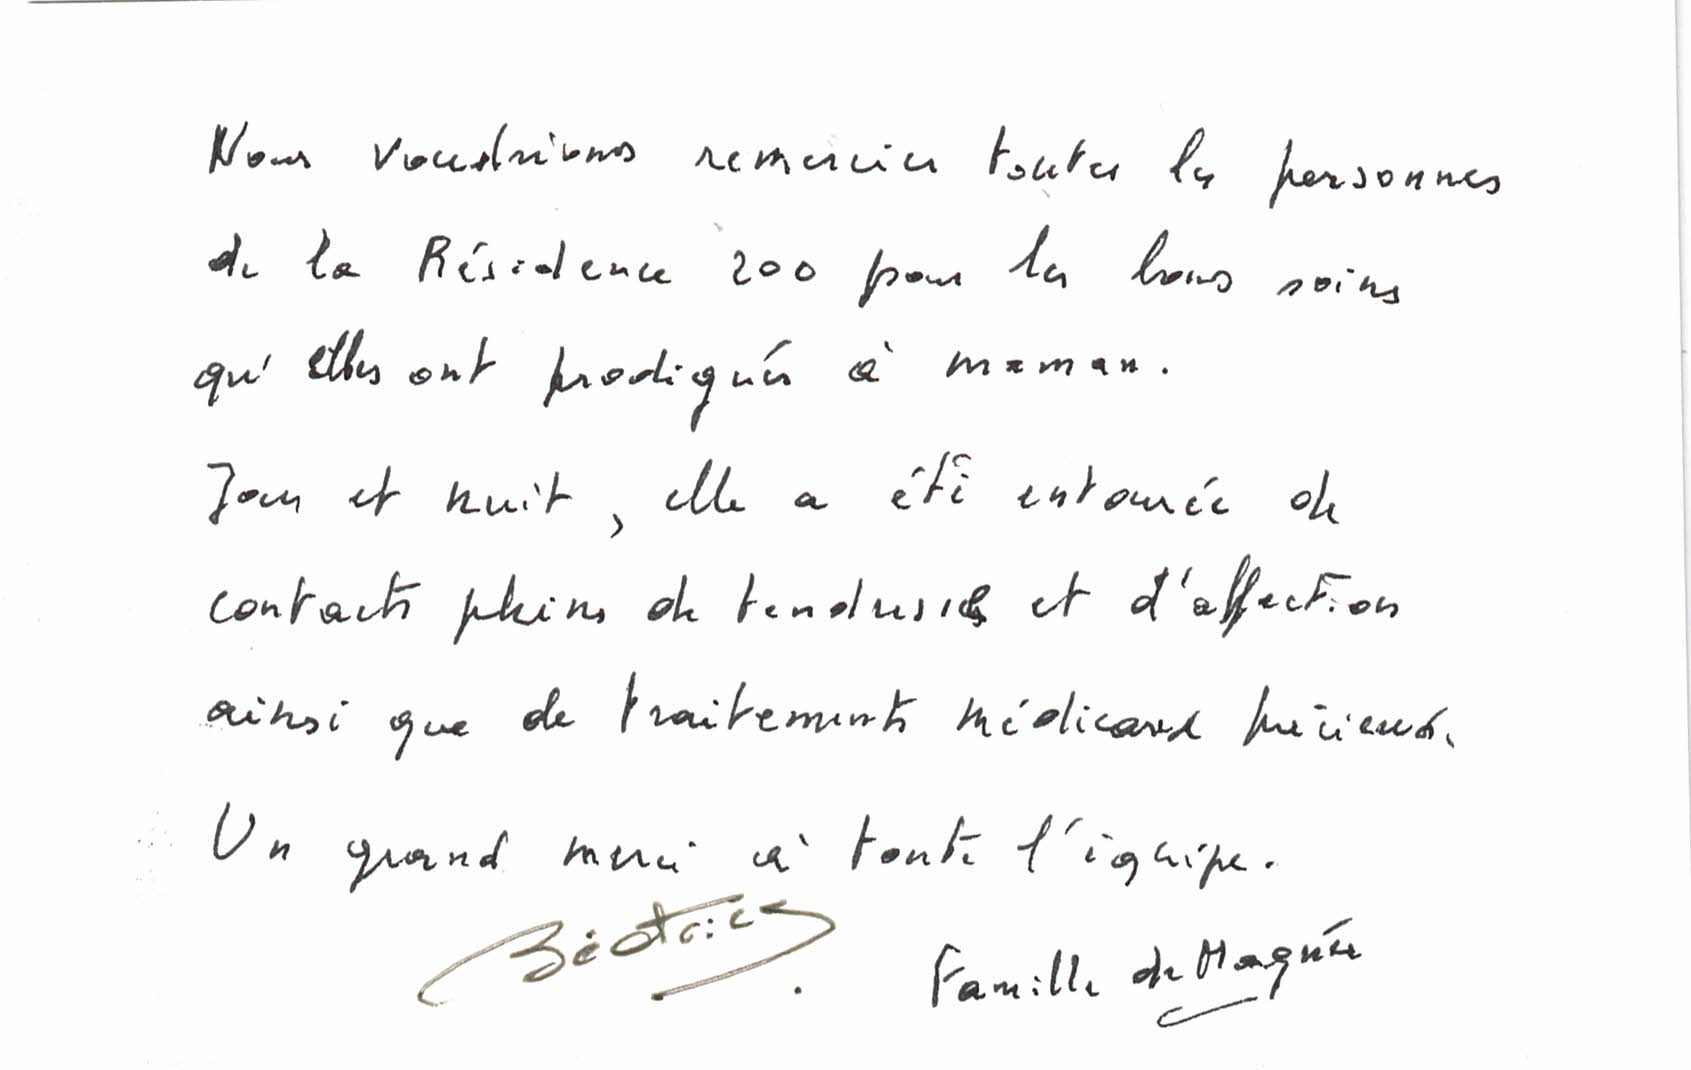 Nous voudrions remercier toutes les personnes
de la Résidence 200 pour les bons soins
qu'elles ont prodigués à maman.
Jour et nuit, elle a été entourée de
contacts pleins de tendresse et d'affection
ainsi que de traitements médicaux précieux.
Un grand merci à toute l'équipe.
Béatrice. Famille de Magnée